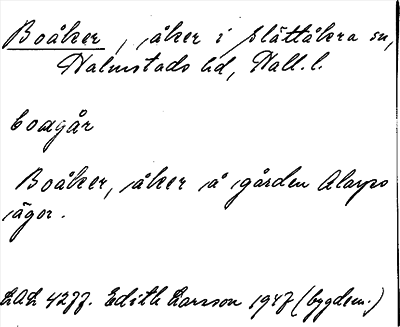 Boåker, åker i Slättåkra sn,
Halmstads hd, Hall. l.
boagår
Boåker, åker å gården
ägor.
LAL 4277. Edith Larsson 1947 (bygdem.)